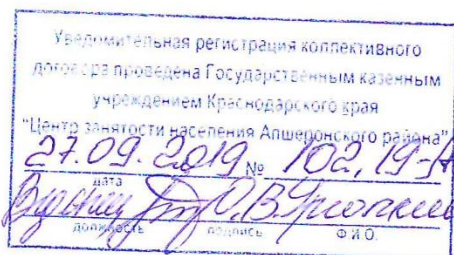 Уведомительная регистрация коллективного
договора проведена Государственным казенным
учреждением Краснодарского края
"Центр занятости населения Апшеронского района"
27.09.2019 № 102,19-
дата
О.В.
должность подпись Ф.И.О.